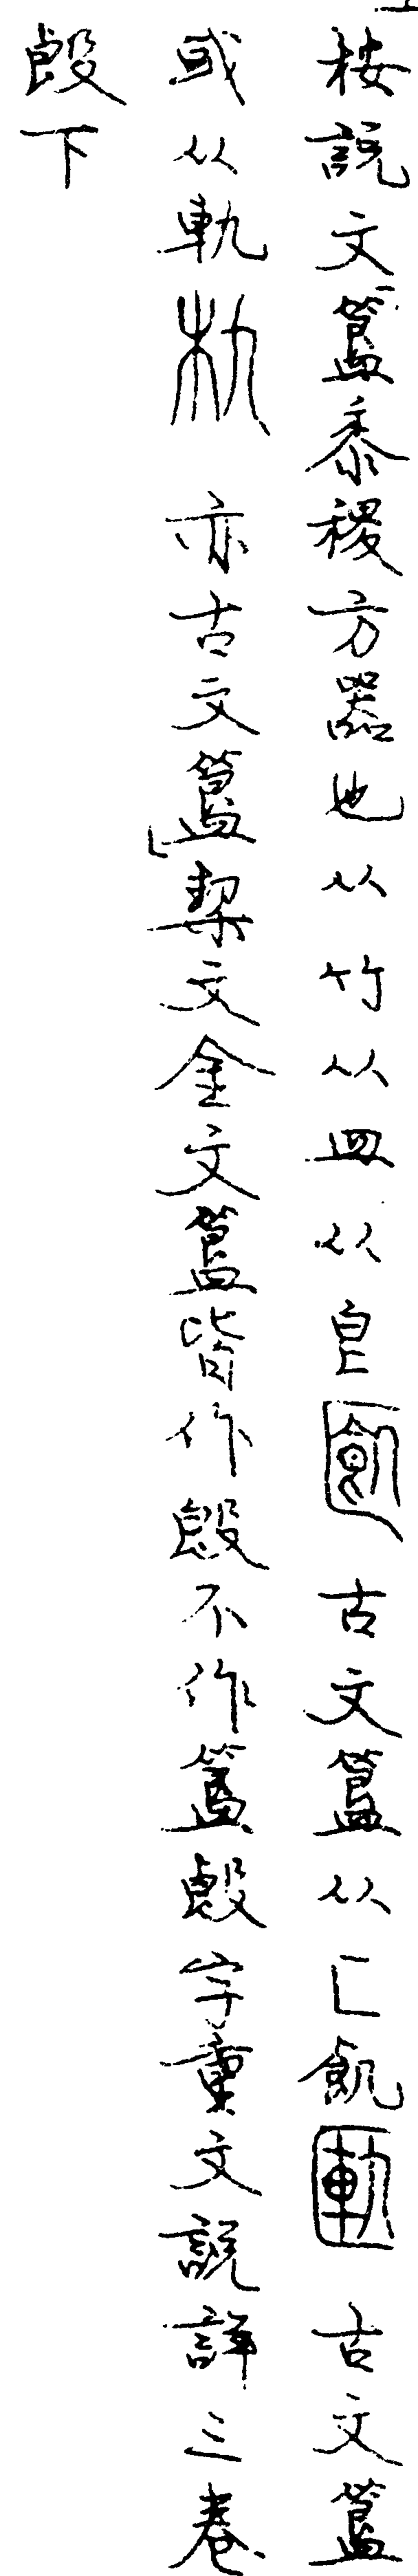 按說文「簋黍稷方器也从竹从皿从皀𠥗古文簋从匚飢𠤳古文簋
或从軌朹亦古文簋」栔文金文簋皆作𣪘不作簋𣪘字重文說詳三卷
𣪘下